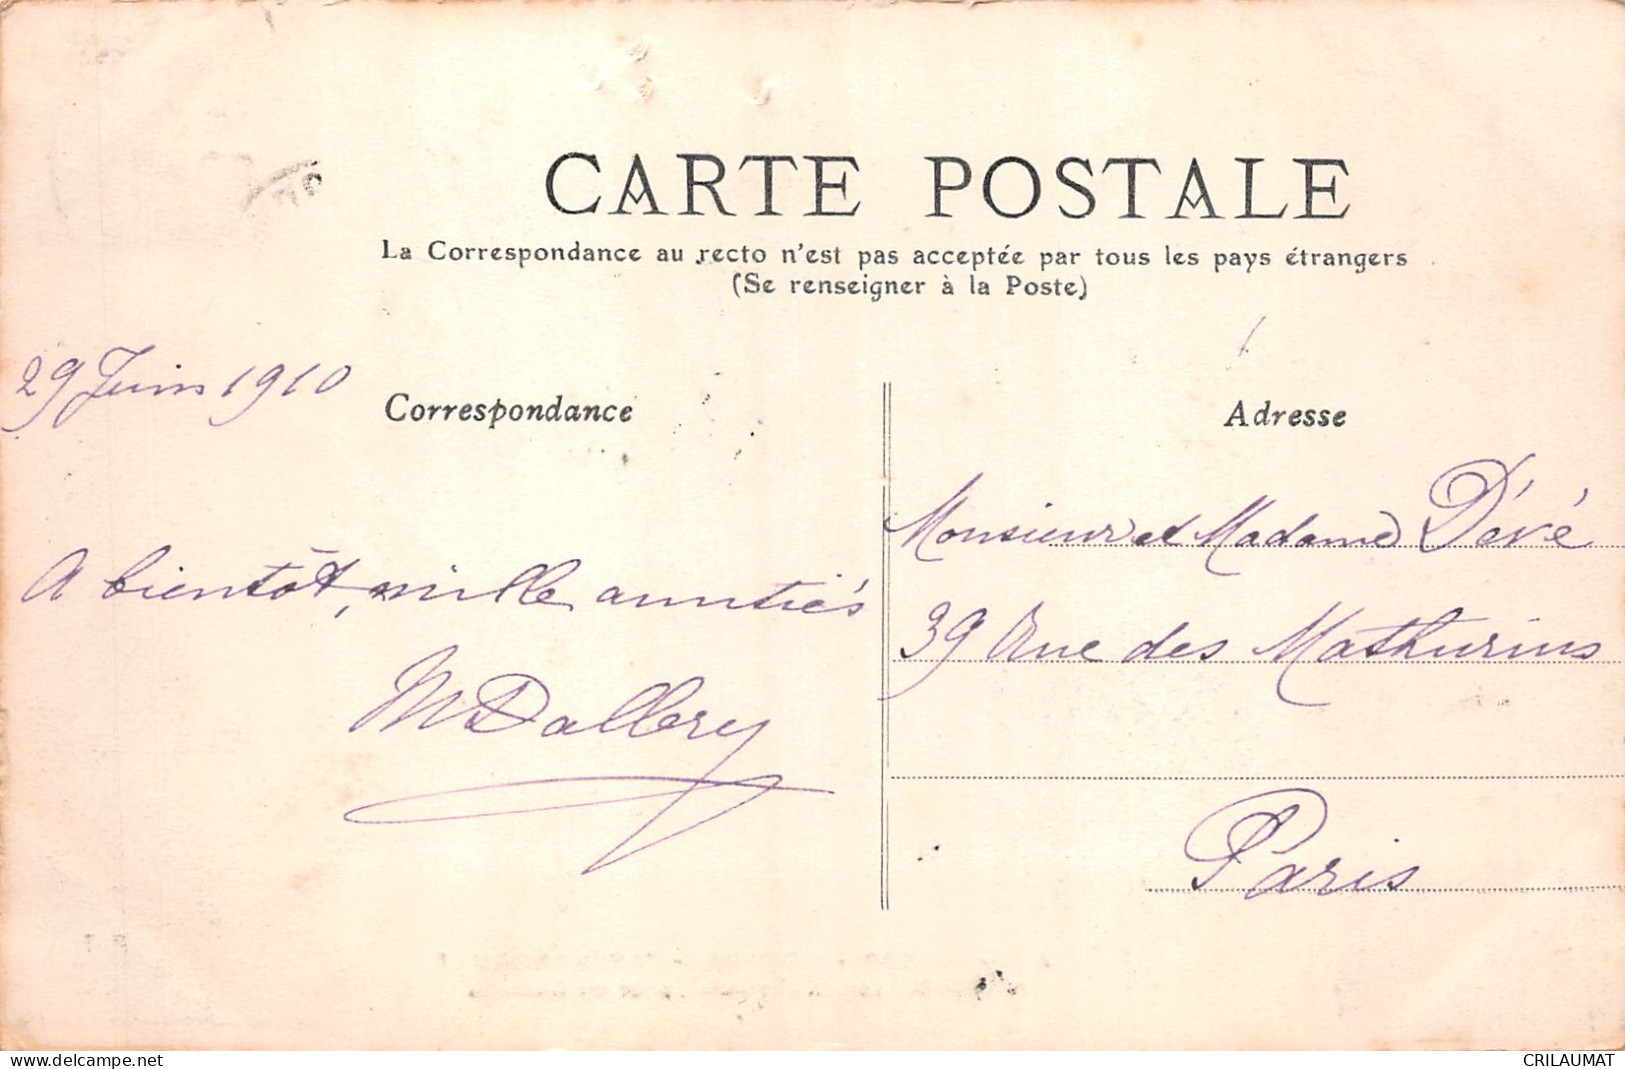 CARTE POSTALE
La Correspondance au recto n'est pas acceptée par tous les pays étrangers
(Se renseigner à la Poste)
29 Juin 1910
Correspondance
A bientôt, mille amitiés
MDallery
Adresse
Monsieur et Madame Dévé
39 Rue des Mathurins
Paris
www.delcampe.net
CRILAUMAT